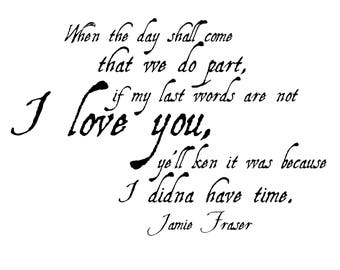 When the day shall come
that we do part,
if my last words are not
I love you,
ye'll ken it was because
I didna have time.
Jamie Fraser